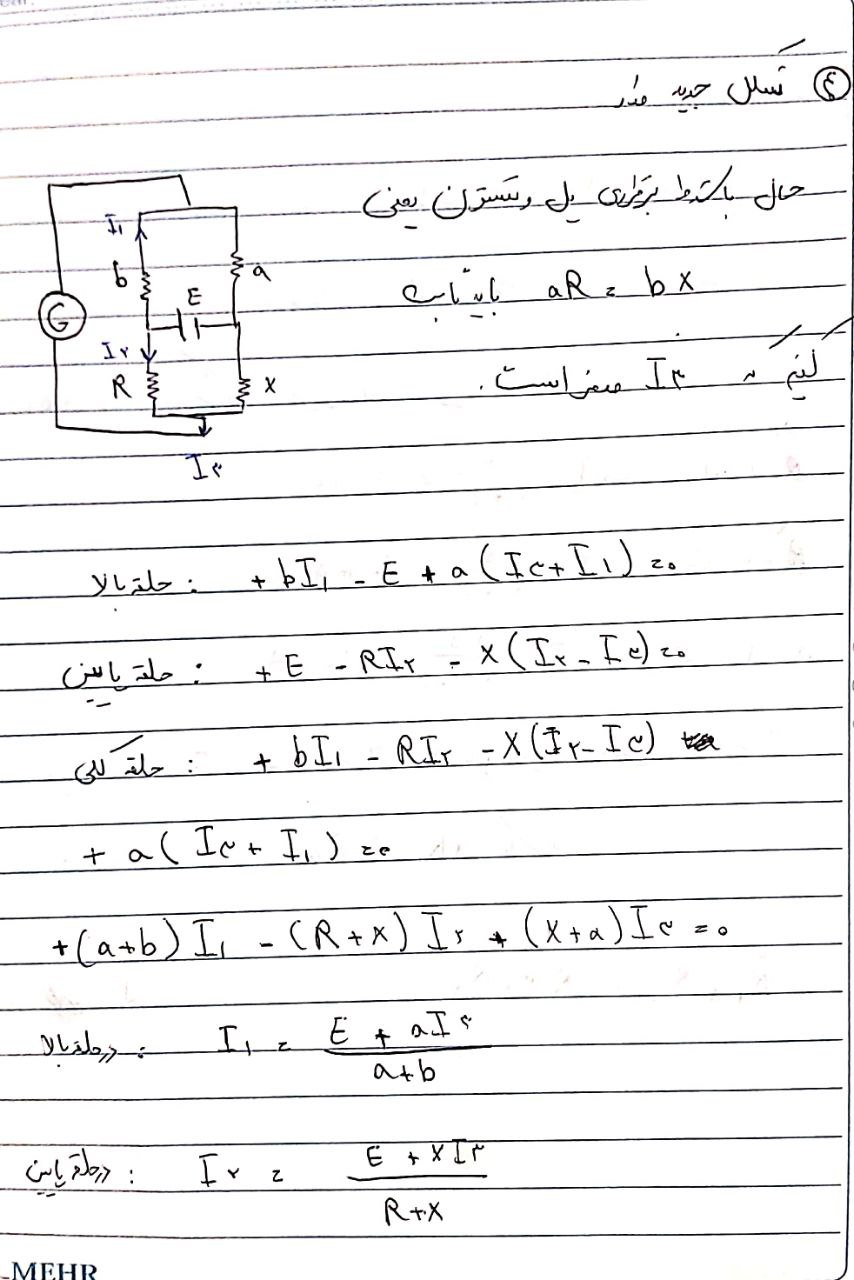 ④ شکل جدید مدار
حال با شرط برقراری پل وتستون یعنی
aR = bX باید ثابت
کنیم که I۳ صفر است.
I۱
b
a
E
G
I۲
R
X
I۳
حلقه بالا : + bI۱ - E + a (I۳ + I۱) = ۰
حلقه پایین : + E - RI۲ - X (I۲ - I۳) = ۰
حلقه کلی : + bI۱ - RI۲ - X (I۲ - I۳)
+ a (I۳ + I۱) = ۰
+ (a+b) I۱ - (R+X) I۲ + (X+a) I۳ = ۰
در حلقه بالا : I۱ = E + aI۳ / a+b
در حلقه پایین : I۲ = E + XI۳ / R+X
MEHR